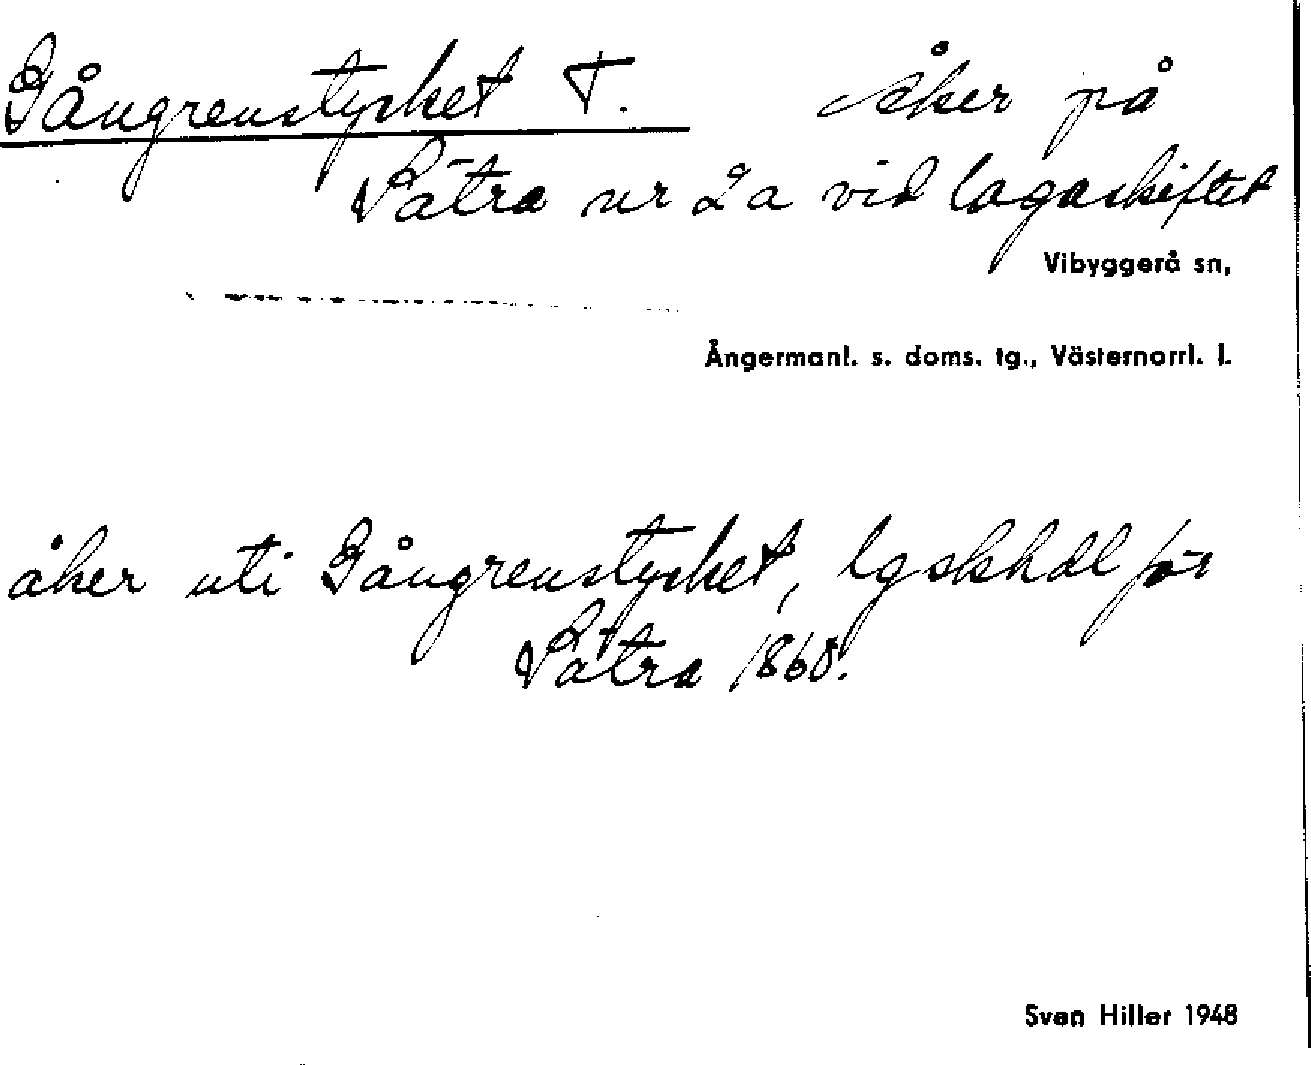 Gångrenstycket †. åker på
Sätra nr 2a vid lagaskiftet
Vibyggerå sn,
Ångermanl. s. doms. tg., Västernorrl. l.
åker uti Gångrenstycket, lgskhdl för
Sätra 1860.
Sven Hiller 1948